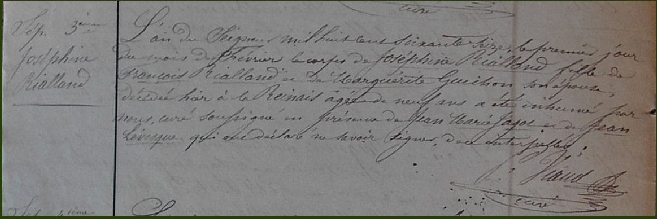 curé
Sep. 3ième
Joséphine
Rialland
L'an du Seigneur mil huit cent soixante seize, le premier jour
du mois de Février le corps de Joséphine Rialland fille de
François Rialland et de Marguérite Guihon son épouse,
décédée hier à la Renais âgée de neuf ans a été inhumé par
nous, curé soussigné en présence de Jean Marie et de Jean
Lévesque qui ont déclaré ne savoir signer, de ce interpellés
curé